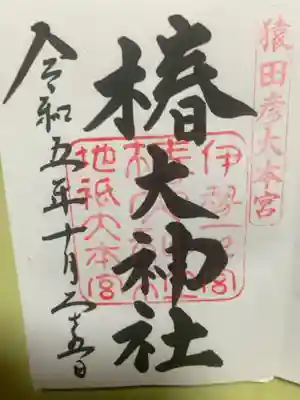 猿田彦大本宮
伊勢一の宮
椿大神社
地祇大本宮
令和五年十月二十五日